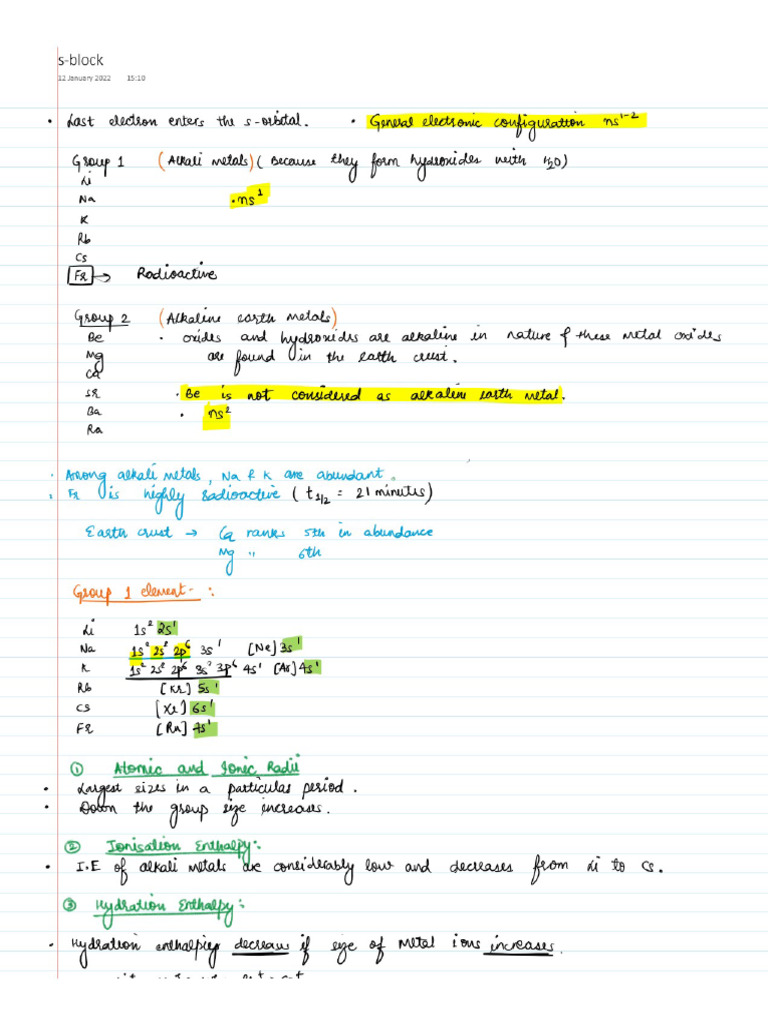 s-block
12 January 2022 15:10
• Last electron enters the s-orbital. • General electronic configuration ns¹⁻²
Group 1 (Alkali metals) (Because they form hydroxides with H₂O)
Li
Na •ns¹
K
Rb
Cs
Fr → Radioactive
Group 2 (Alkaline earth metals)
Be • oxides and hydroxides are alkaline in nature & these metal oxides
Mg are found in the earth crust.
Ca
Sr • Be is not considered as alkaline earth metal.
Ba • ns²
Ra
• Among alkali metals, Na & K are abundant.
• Fr is highly radioactive (t₁/₂ = 21 minutes)
Earth crust → Ca ranks 5th in abundance
Mg " 6th
Group 1 element- :
Li 1s² 2s¹
Na 1s² 2s² 2p⁶ 3s¹ [Ne] 3s¹
K 1s² 2s² 2p⁶ 3s² 3p⁶ 4s¹ [Ar] 4s¹
Rb [Kr] 5s¹
Cs [Xe] 6s¹
Fr [Rn] 7s¹
① Atomic and Ionic Radii
• Largest sizes in a particular period.
• Down the group size increases.
② Ionisation Enthalpy:
• I.E of alkali metals are considerably low and decreases from Li to Cs.
③ Hydration Enthalpy:
• Hydration enthalpies decreases if size of metal ions increases.